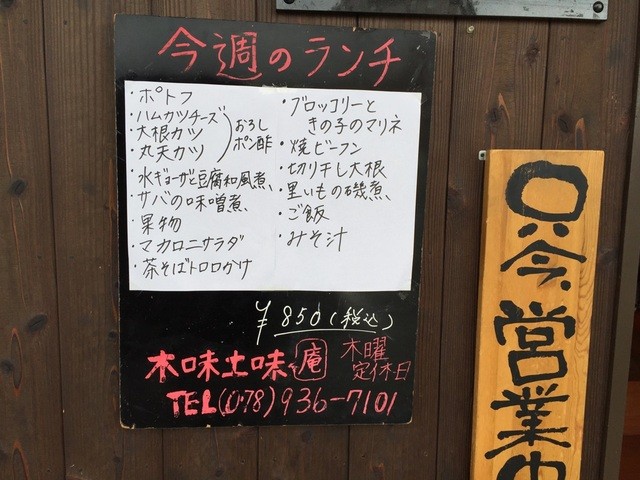 今週のランチ
・ポトフ
・ハムカツチーズ
・大根カツ
・丸天カツ
おろし
ポン酢
・水ギョーザと豆腐和風煮
・サバの味噌煮
・果物
・マカロニサラダ
・茶そばトロロがけ
・ブロッコリーと
きの子のマリネ
・焼ビーフン
・切り干し大根
・里いもの磯煮
・ご飯
・みそ汁
¥850(税込)
木味土味庵
木曜
定休日
TEL(078)936-7101
只今営業中